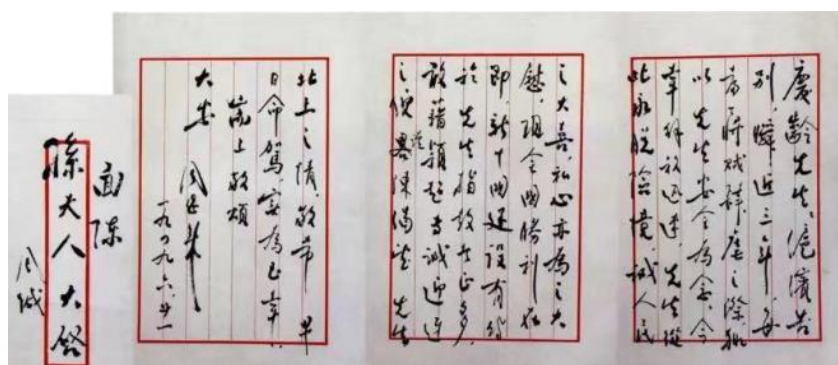 慶齡先生：滬濱告
別，瞬近三年，每
當蔣賊肆虐之際，輒
以先生安全為念。今
幸解放迅速，先生從
此永脫險境，誠人民
之大喜，私心亦為之大
慰。現全國勝利在
即，新中國建設有待
於先生指教者正多，
敢藉穎超專誠迎迓
之便，謹陳渴望先生
北上之情，敬希早
日命駕，實為至幸。
耑上敬頌
大安
周恩來
一九四九.六.廿一
面陳
孫夫人大啓
周緘